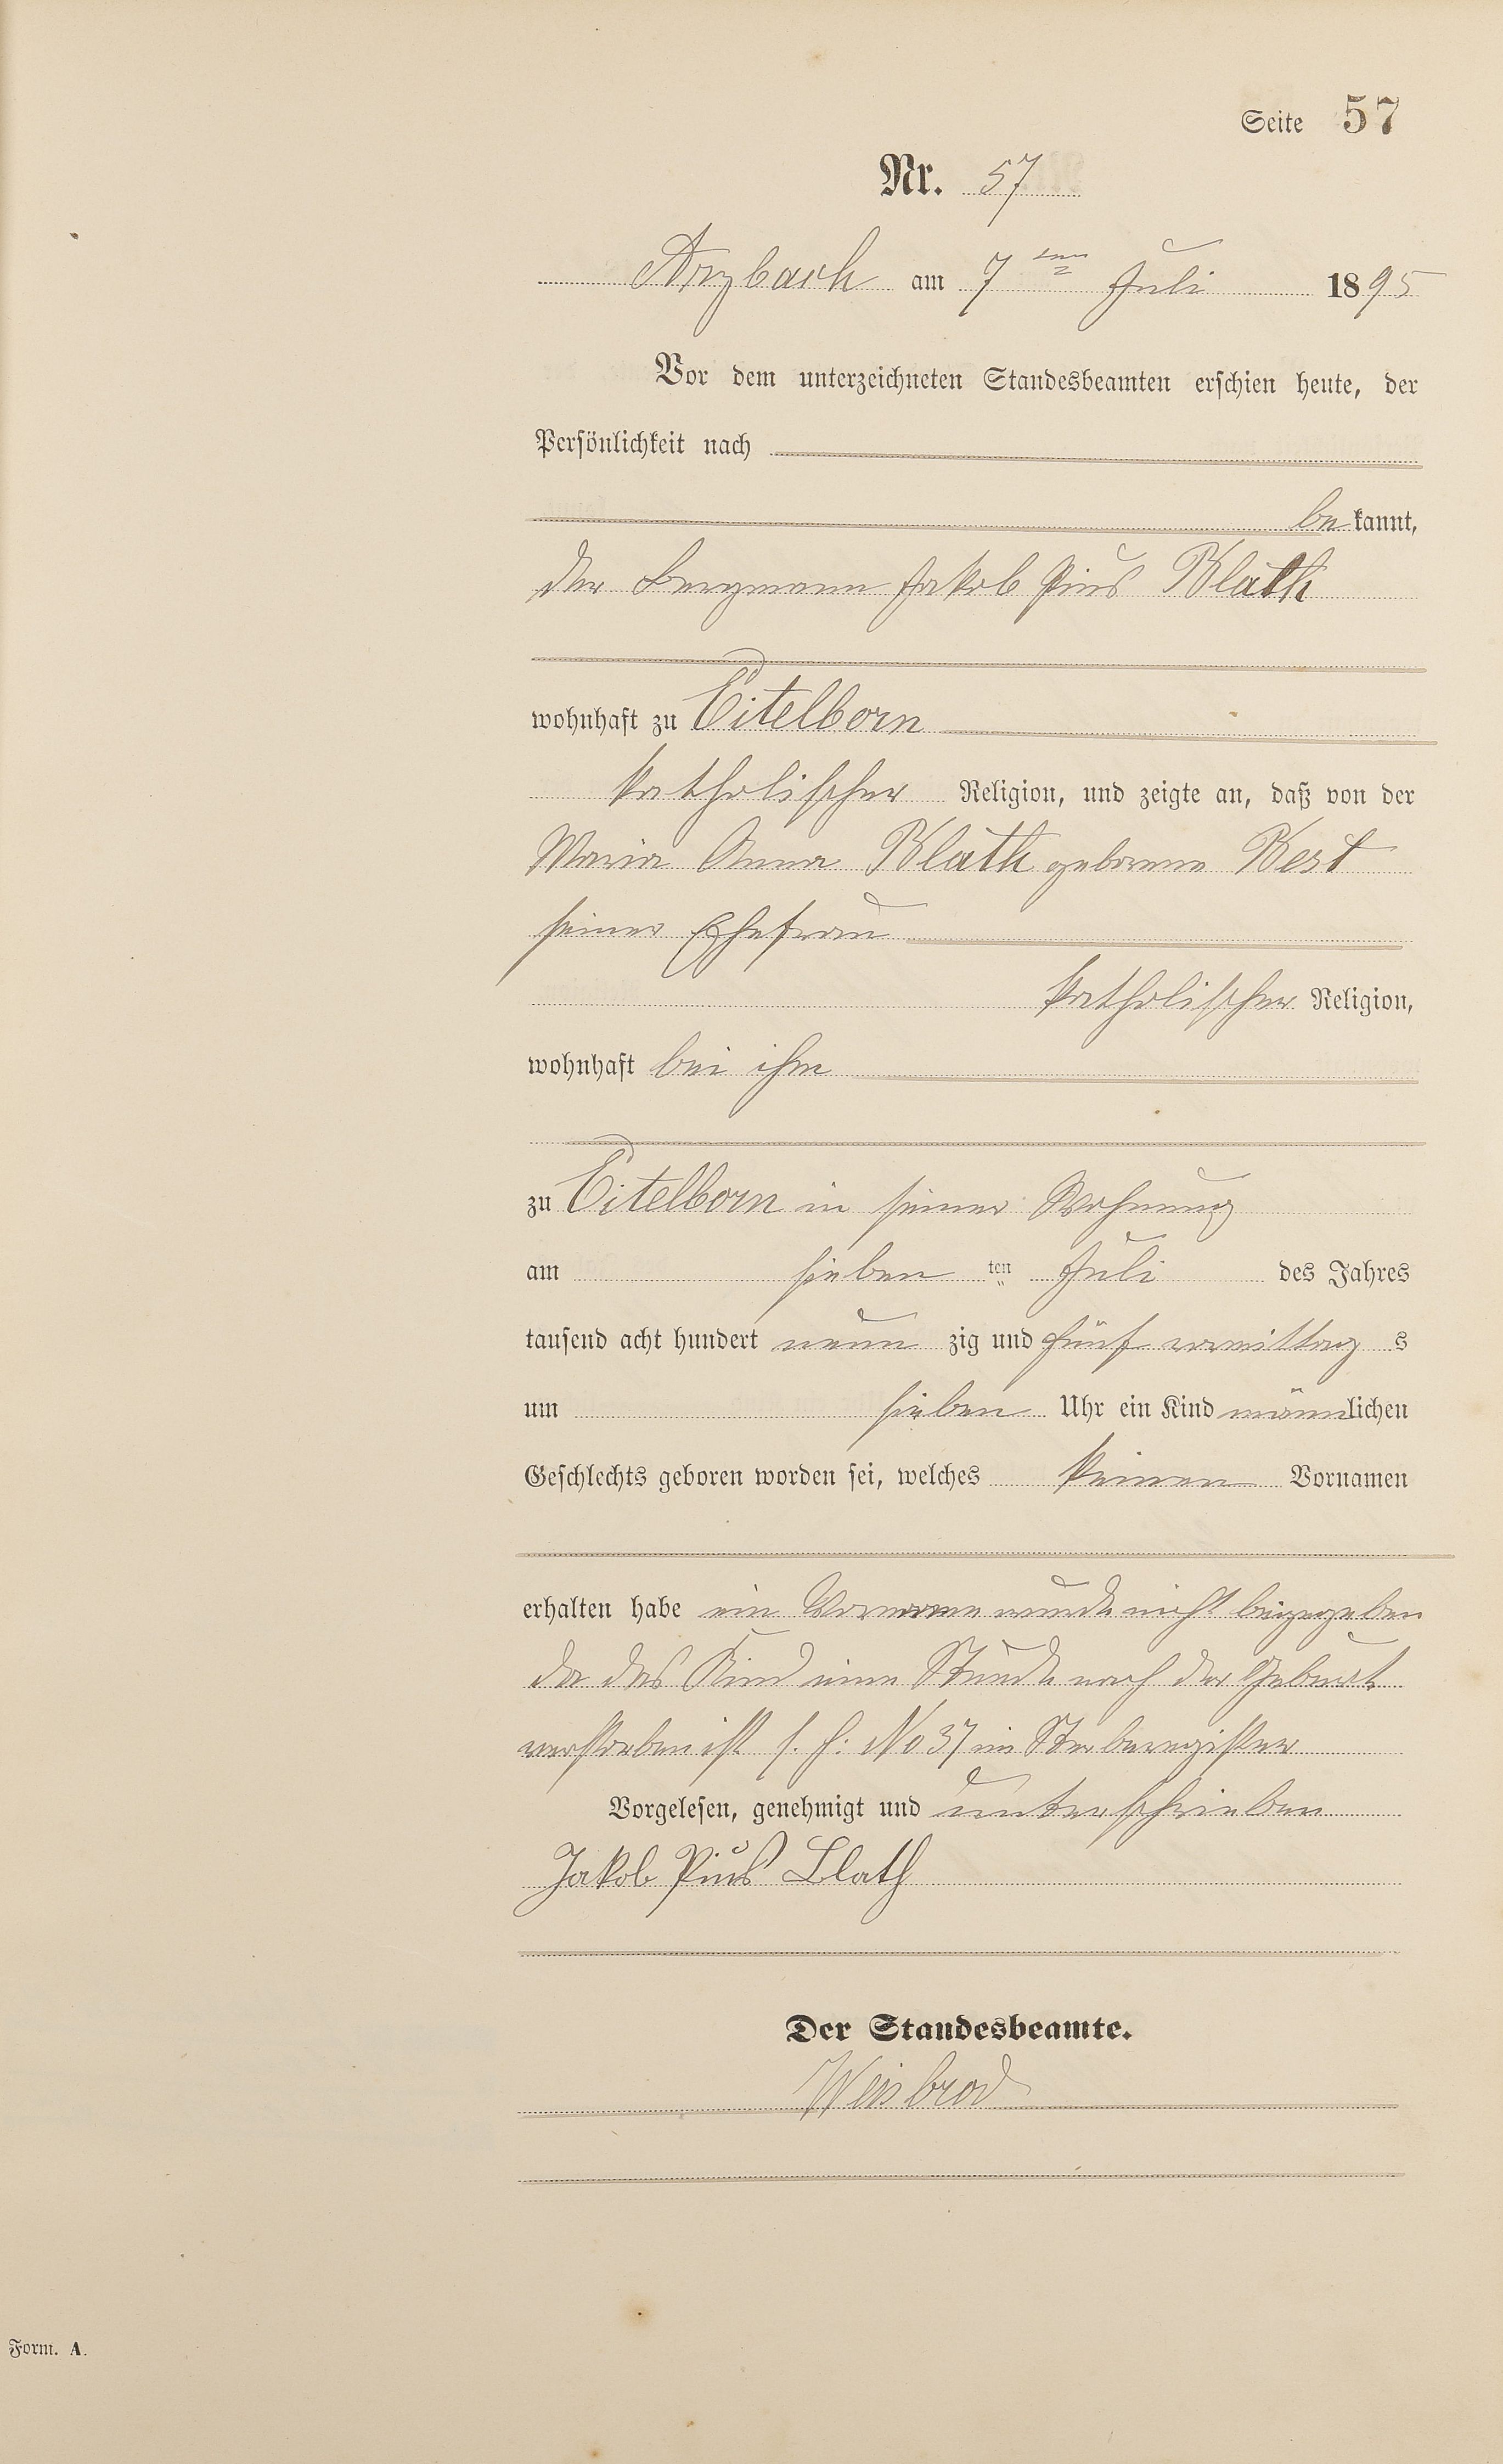 Seite 57
Nr. 57
Arzbach am 7ten Juli 1895
Vor dem unterzeichneten Standesbeamten erschien heute, der
Persönlichkeit nach
bekannt,
der Bergmann Jakob Pius Blath
wohnhaft zu Eitelborn
katholischer Religion, und zeigte an, daß von der
Maria Anna Blath geborene Best
seiner Ehefrau
katholischer Religion,
wohnhaft bei ihm
zu Eitelborn in seiner Wohnung
am sieben ten Juli des Jahres
tausend acht hundert neun zig und fünf vormittag s
um sieben Uhr ein Kind männlichen
Geschlechts geboren worden sei, welches keinen Vornamen
erhalten habe ein Vorname wurde nicht beigegeben
da das Kind eine Stunde nach der Geburt
verstorben ist s. h: No 37 im Sterberegister
Vorgelesen, genehmigt und unterschrieben
Jakob Pius Blath
Der Standesbeamte.
Weisbrod
Form. A.